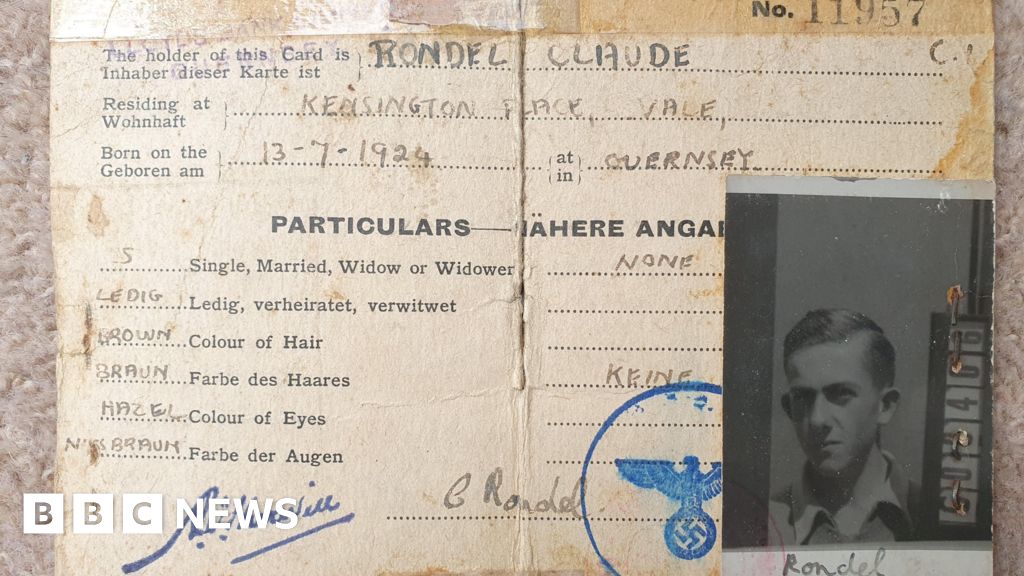 No. 11957
The holder of this Card is
Inhaber dieser Karte ist
RONDEL CLAUDE C.
Residing at
Wohnhaft
KENSINGTON PLACE, VALE,
Born on the
Geboren am
13-7-1924
at
in
GUERNSEY
PARTICULARS—NÄHERE ANGA
S Single, Married, Widow or Widower NONE
LEDIG Ledig, verheiratet, verwitwet
BROWN Colour of Hair
BRAUN Farbe des Haares KEINE
HAZEL Colour of Eyes
BRAUN Farbe der Augen
C Rondel
GU2406
Rondel
BBC NEWS